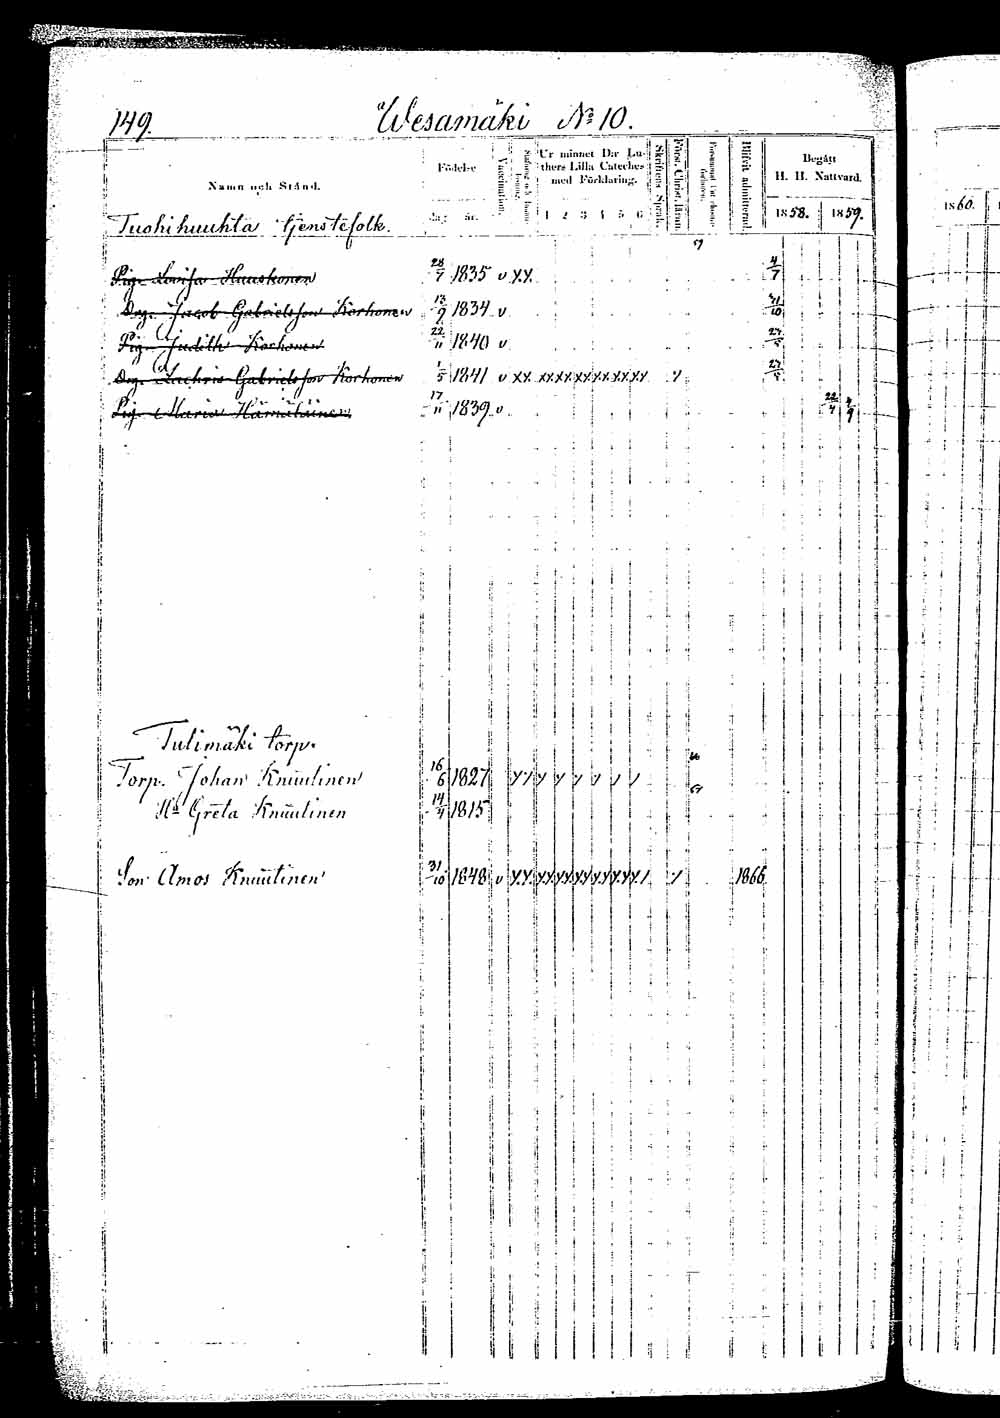 149. Wesamäki No 10.
Namn och Stånd.
Födelse
dag år.
Vaccination.
Ur minnet D:r Luthers Lilla Cateches med Förklaring.
1 2 3 4 5 6
Skriftens Språk.
Först. Christ. läran.
Blifvit admitterad.
Begått
H. H. Nattvard.
1858. 1859.
1860.
Tuohihuuhta tjenstefolk.
Pig. Lovisa Huuskonen 28/7 1835 v XX 4/7
Drg. Jacob Gabrielsson Korhonen 13/9 1834 v 31/10
Pig. Judith Korhonen 22/11 1840 v 24/5
Drg. Zachris Gabrielsson Korhonen 1/5 1841 v XX XXXXXXXXXXXX 24/5
Pig. Maria Hämäläinen 17/11 1839 v 22/4 4/9
Tulimäki torp.
Torp. Johan Knuutinen 16/6 1827
Ha Greta Knuutinen 14/4 1815
Son Amos Knuutinen 31/10 1848 v XX 1866